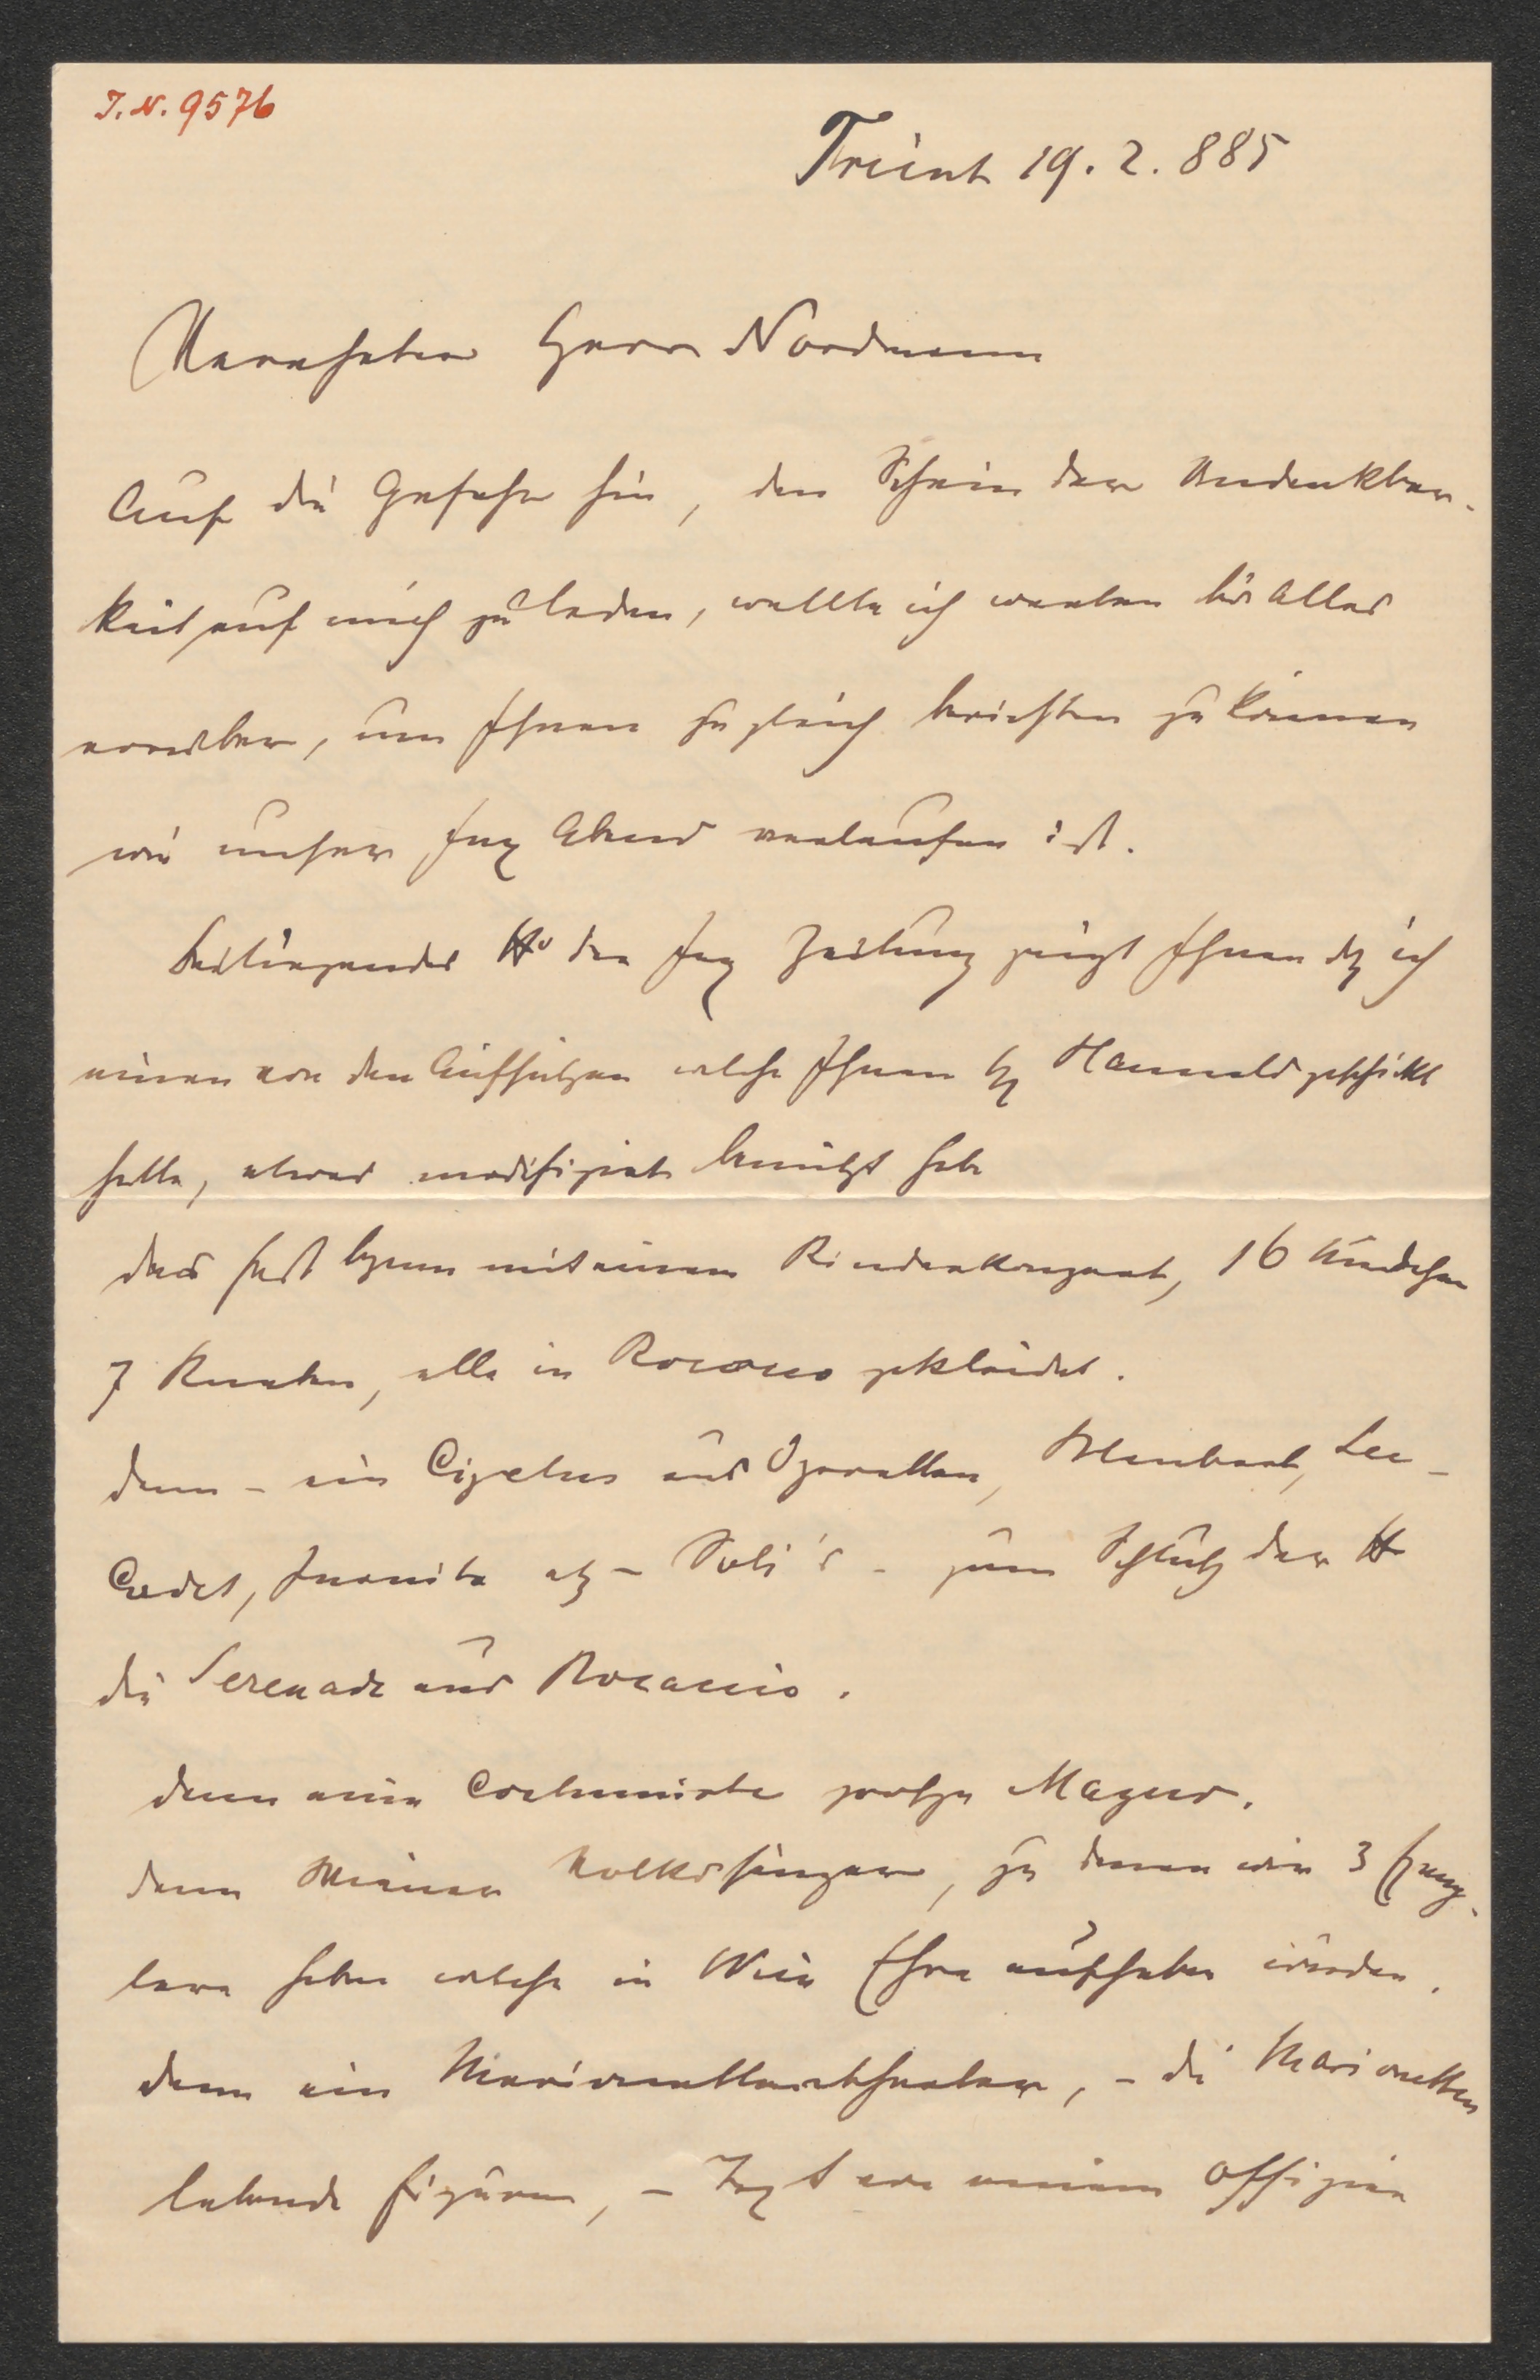 I. N. 9576
Trient 19. 2. 885
Verehrter Herr Nordmann
Auf die Gefahr hin, den Schein der Undankbar-
keit auf mich zu laden, wollte ich warten bis Alles
vorüber, um Ihnen zugleich berichten zu können
wie unser Jux Abend verlaufen ist.
Beiliegendes No der Jux Zeitung zeigt Ihnen dß ich
einen von den Aufsätzen welche Ihnen geschickt
hatte, etwas modifizirt benützt habe
Das Fest begann mit einem Kinderkonzert, 16 Mädchen
7 Knaben, alle in Rococco gekleidet.
Dann – ein Cyclus aus Operetten, See-
Cadet, Juanita etz – Soli's – zum Schluß der
die Serenade aus Bocaccio.
Dann eine Costumirte Mazur.
Dann Wiener Volkssänger, zu denen wir 3
haben welche in Wien Ehre aufheben würden.
Dann ein Marionettentheater, – die Marionetten
lebende Figuren, – Text von einem Offizier